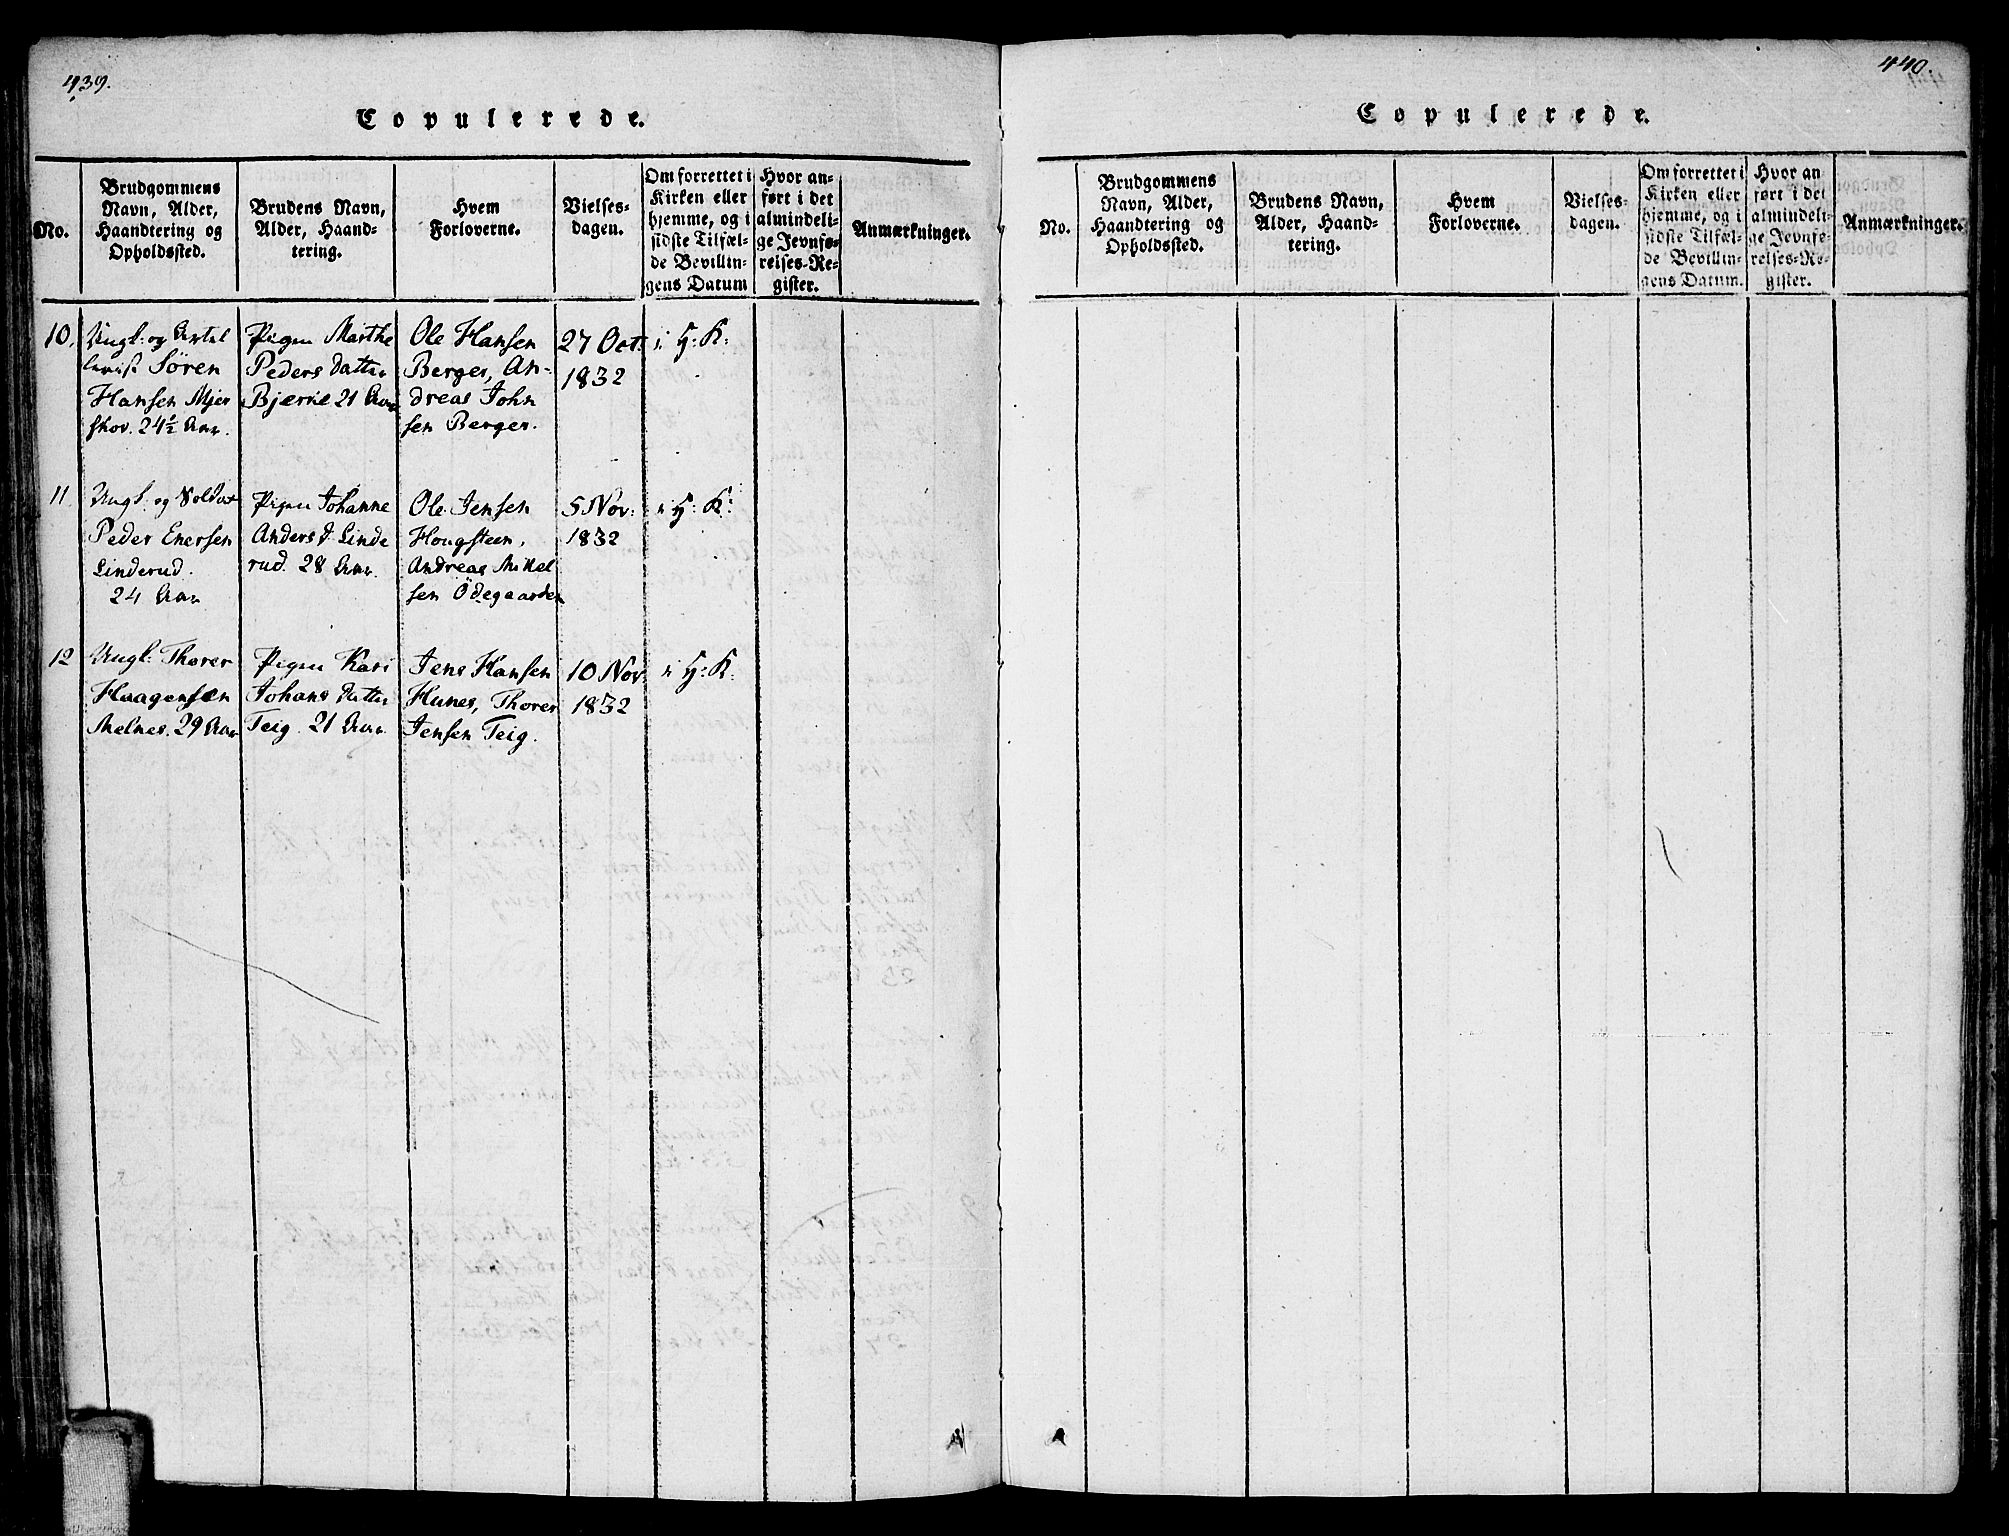 439.
Copulerede.
No.
Brudgommens
Navn, Alder,
Haandtering og
Opholdssted.
Brudens Navn,
Alder, Haand-
tering.
Hvem
Forloverne.
Vielses-
dagen.
Om forrettet i
Kirken eller
hjemme, og i
sidste Tilfæl-
de Bevillin-
gens Datum
Hvor an-
ført i det
almindeli-
ge Jevnfø-
relses-Re-
gister.
Anmærkninger.
10.
Ungk: og Artel
lerist Sören
Hansen Mjer
skov. 24½ Aar.
Pigen Marthe
Peders Datter
Bjærke 21 Aar
Ole Hansen
Berger, An-
dreas John
sen Berger.
27 Oct:
1832
i H: K:
11
Ungk: og Soldat
Peder Enersen
Linderud.
24 Aar
Pigen Johanne
Anders d. Linde
rud. 28 Aar.
Ole Jensen
Hougsteen,
Andreas Mikel
sen Ödegaarden
5 Nov:
1832
i H: K:
12
Ungk: Thorer
Haagensen
Melnes. 29 Aar
Pigen Kari
Johans Datter
Teig. 21 Aar
Jens Hansen
Hunes, Thorer
Jensen Teig.
10 Nov
1832
i H: K:
440.
Copulerede.
No.
Brudgommens
Navn, Alder,
Haandtering og
Opholdssted.
Brudens Navn,
Alder, Haand-
tering.
Hvem
Forloverne.
Vielses-
dagen.
Om forrettet i
Kirken eller
hjemme, og i
sidste Tilfæl-
de Bevillin-
gens Datum.
Hvor an
ført i det
almindeli-
ge Jevnfø-
relses-Re-
gister.
Anmærkninger.